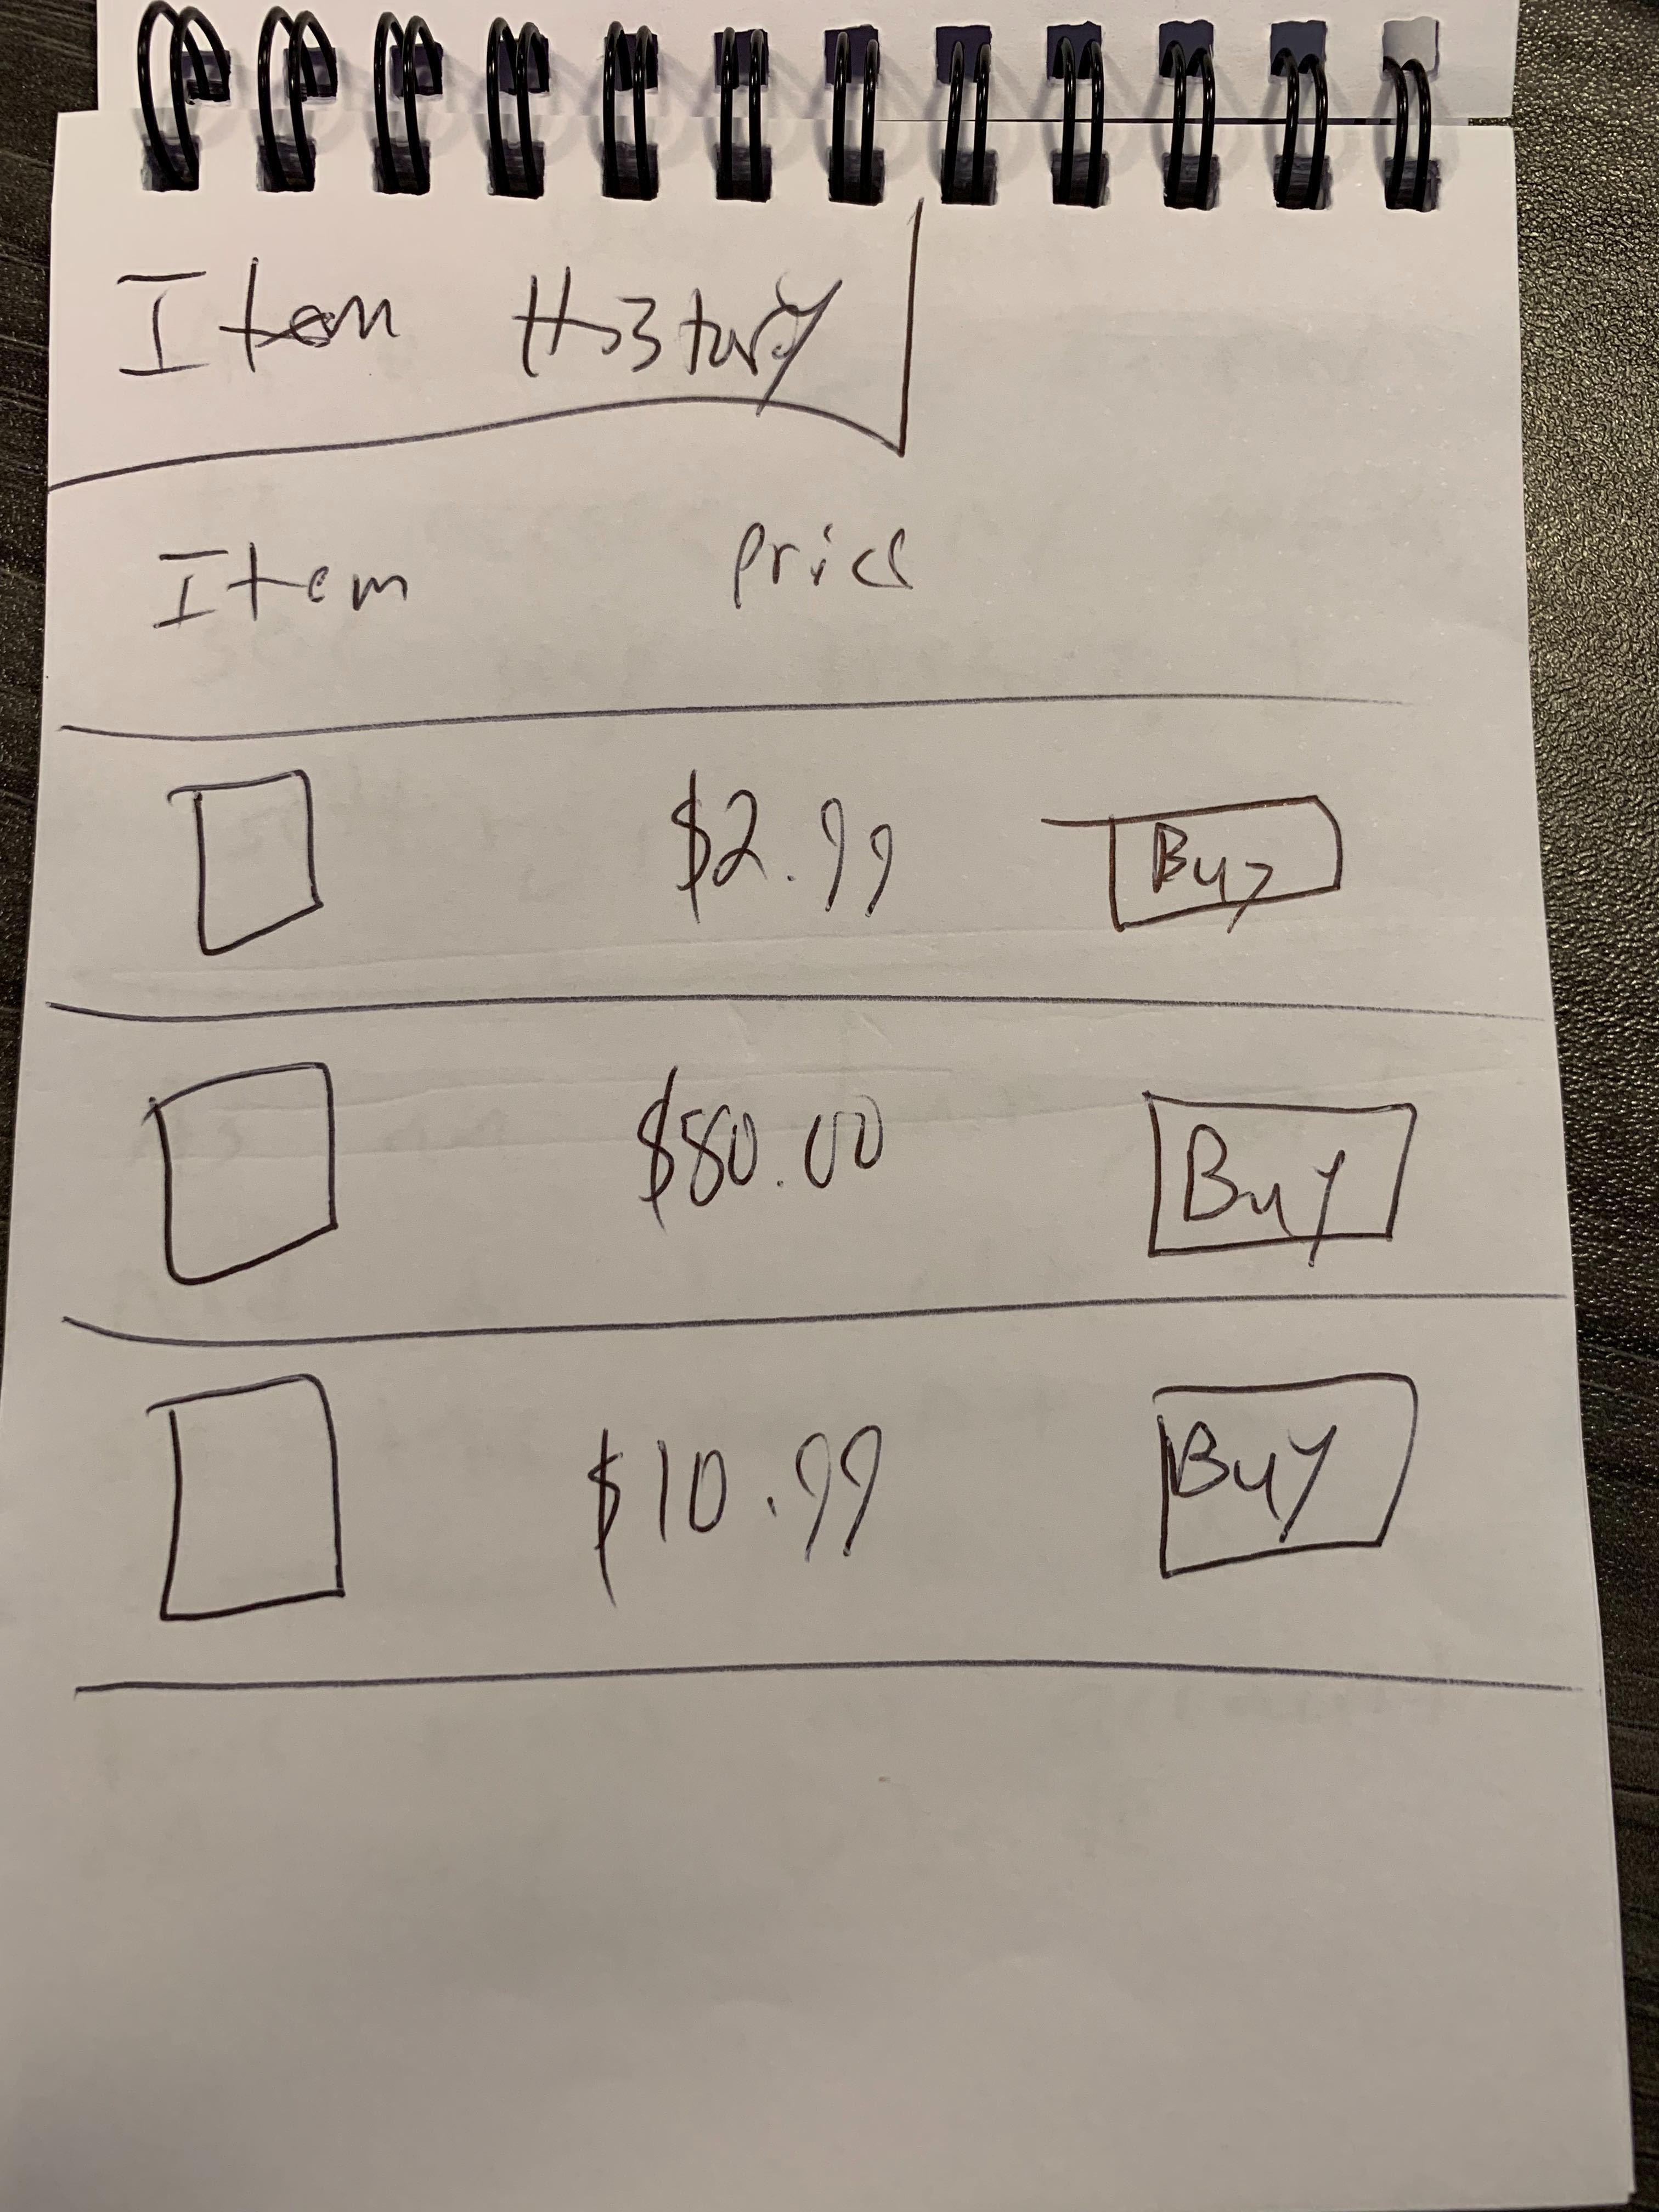 Item History
Item Price
$2.99 Buy
$80.00 Buy
$10.99 Buy